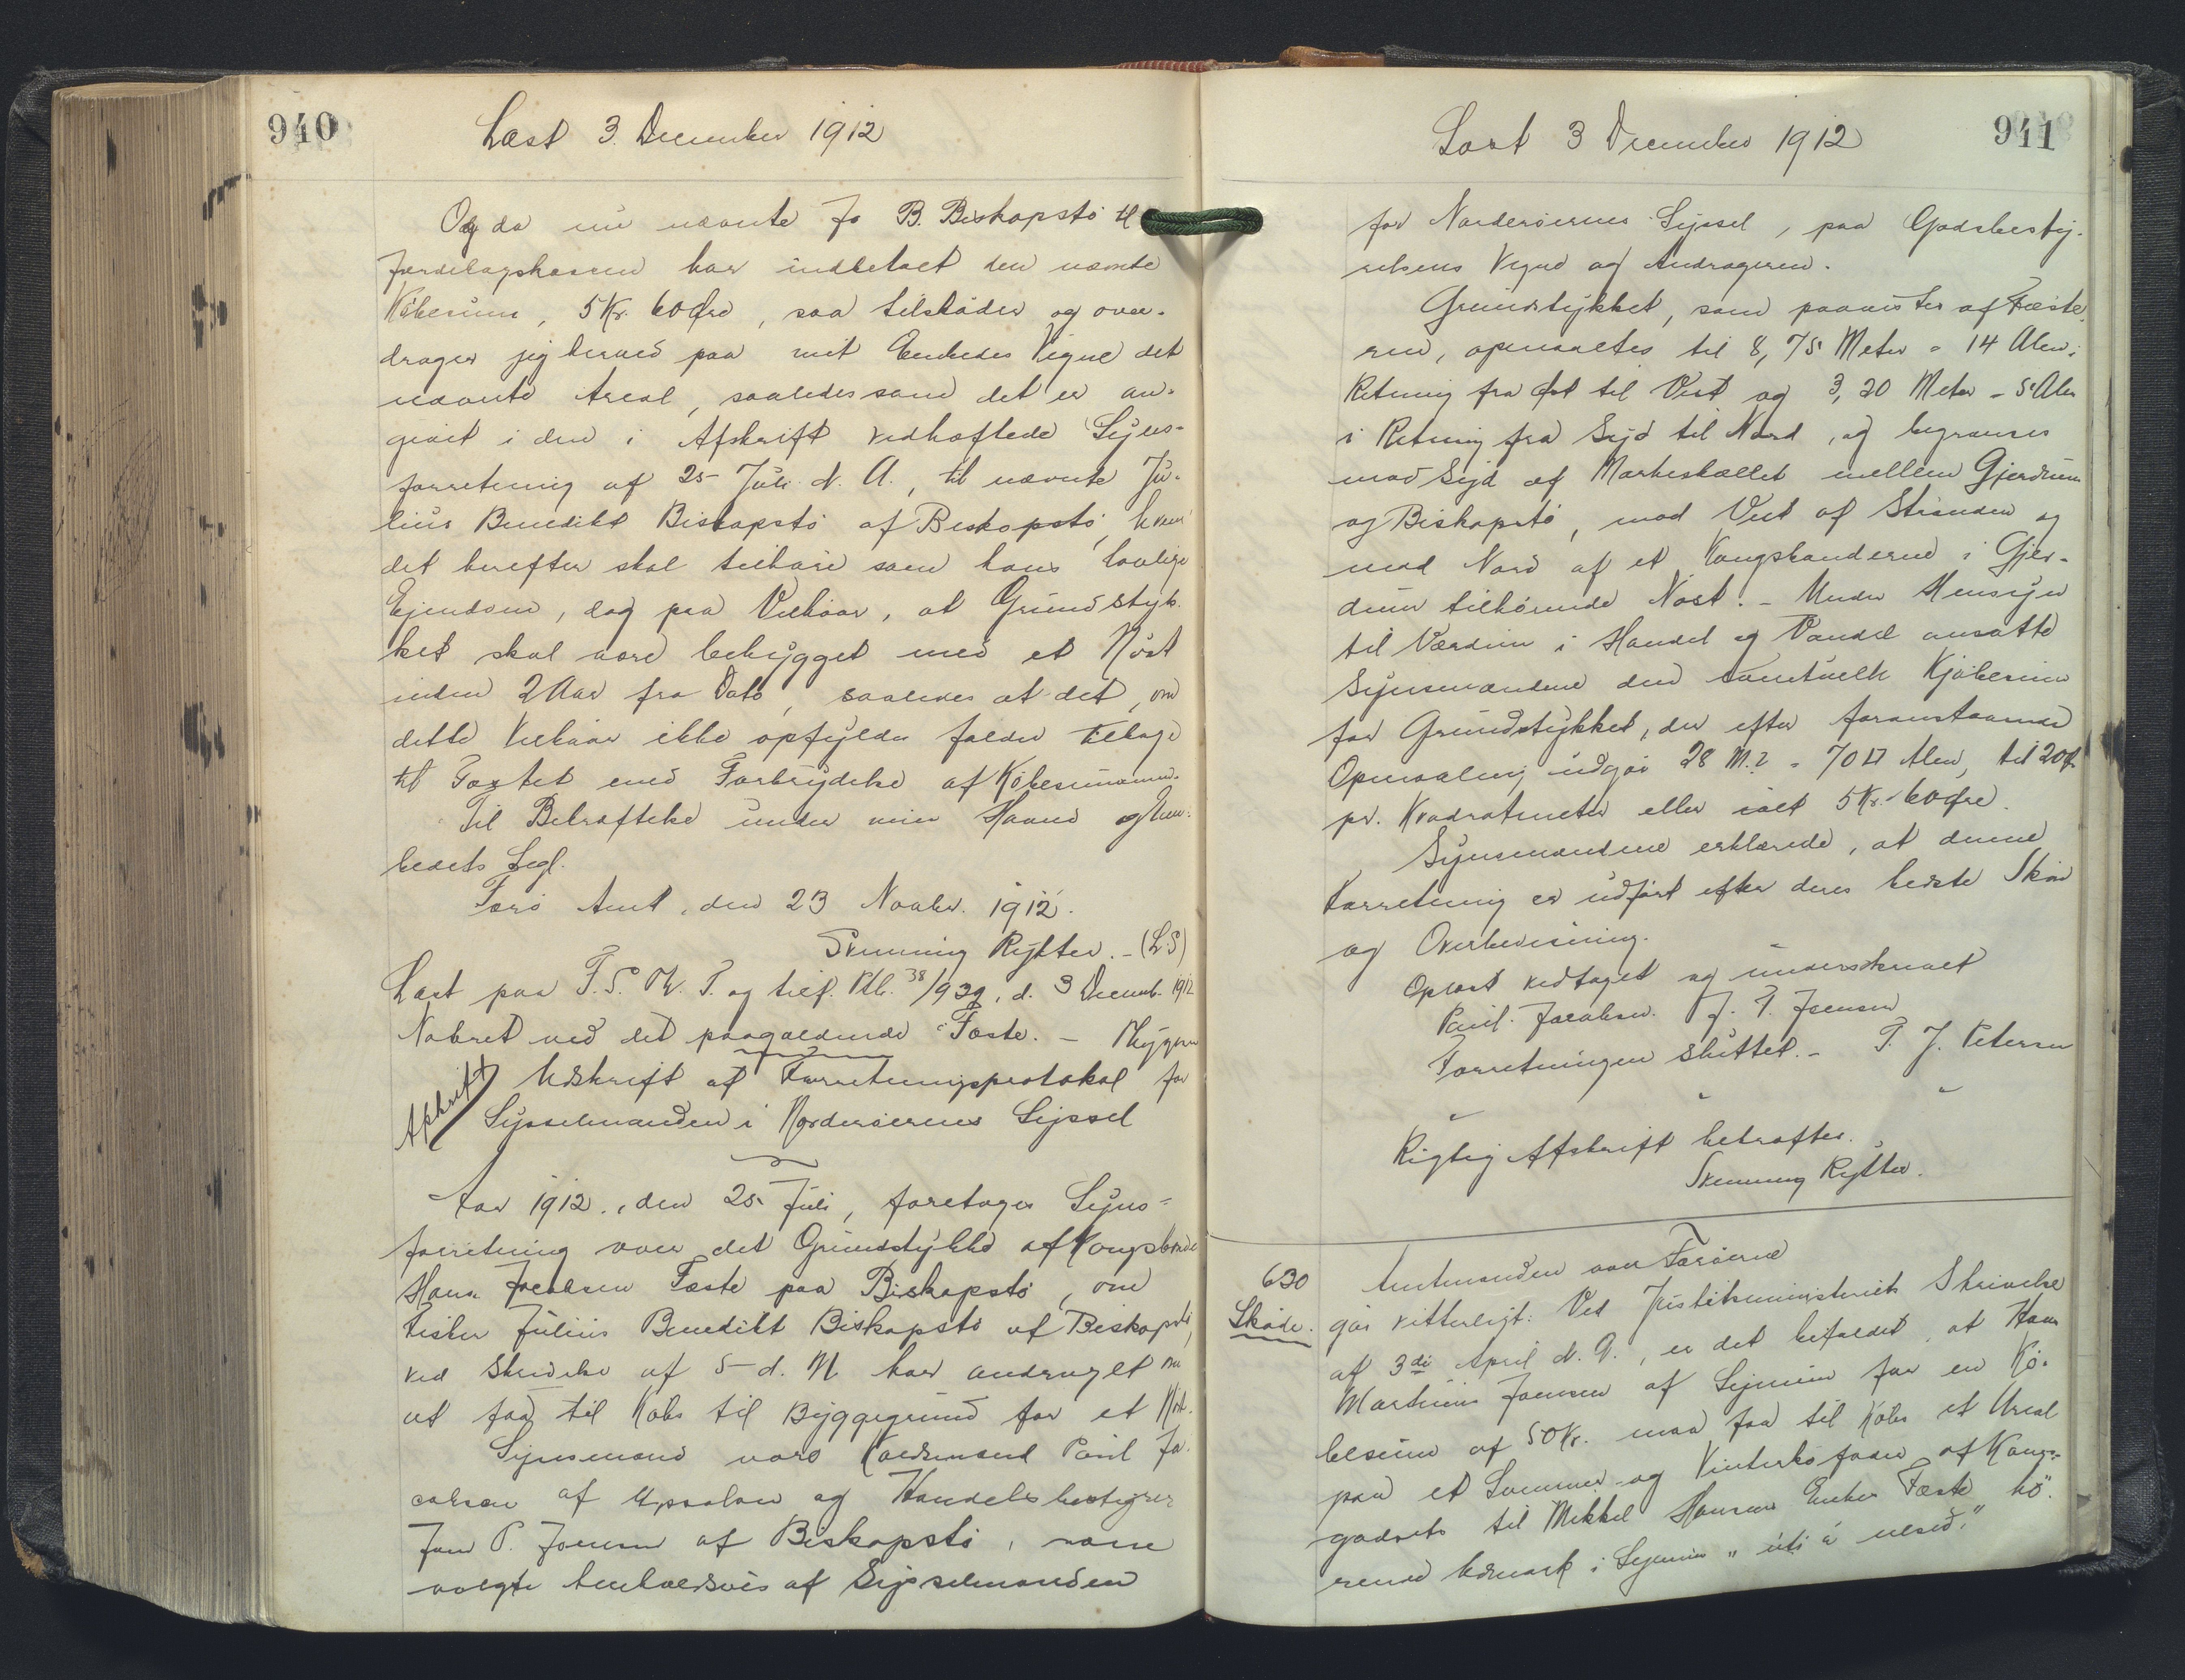 940
Læst 3. December 1912
Og da nu nævnte J. B. Biskopstø til
Jordebogskassen har indbetalt den nævnte
Købesum, 5 Kr. 60 Øre, saa tilskøder og over-
drager jeg herved paa mit Embedes Vegne det
nævnte Areal, saaledes som det er an-
givet i den i Afskrift vedhæftede Syns-
forretning af 25 Juli d. A., til nævnte Ju-
lius Benedikt Biskopstø af Biskopstø, hvem
det herefter skal tilhøre som hans lovlige
Ejendom, dog paa Vilkaar, at Grundstyk-
ket skal være bebygget med et Nøst
inden 2 Aar fra Dato, saaledes at det, om
dette Vilkaar ikke opfyldes falder tilbage
til Fæstet med Forbrydelse af Købesummen.
Til Bekræftelse under min Haand og Em-
bedets Segl.
Færø Amt, den 23 Novbr. 1912.
Svenning Rytter. - (L.S)
Læst paa F. S. O. V. T. og tilf. Ptk. 38/939, d. 3 Decemb. 1912
Noteret ved det paagældende Fæste. -
Afskrift
Udskrift af Forretningsprotokol for
Sysselmanden i Norderøernes Syssel
Aar 1912, den 25. Juli, foretoges Syns-
forretning over det Grundstykke af Kongsbonde
Hans Jacobsen Fæste paa Biskopstø, om
Fisker Julius Benedikt Biskopstø af Biskopstø,
ved Skrivelse af 5 d. M. har andraget om
at faa til Købs til Byggegrund for et Nøst.
Synsmænd vare Poul Ja-
cobsen af Upsalen og Handelsbestyrer
Jens P. Joensen af Biskopstø, som
valgte af Sysselmanden
Læst 3 December 1912
941
for Norderøernes Syssel, paa Godsbesty-
relsens Vegne og Andrageren.
Grundstykket, som paavistes af Fæste-
ren, opmaaltes til 8,75 Meter = 14 Alen i
Retning fra Øst til Vest og 3,20 Meter = 5 Alen
i Retning fra Syd til Nord, og begrænses
mod Syd af Markeskellet mellem Gjerdum
og Biskopstø, mod Vest af Stranden og
mod Nord af et Kongsbønderne i Gjer-
dum tilhørende Nøst. - Under Hensyn
til Værdien i Handel og Vandel ansatte
Synsmændene den eventuelle Kjøbesum
for Grundstykket, der efter foranstaaende
Opmaaling udgør 28 M.2 = 70 □ Alen, til 20 Ø.
pr. Kvadratmeter eller ialt 5 Kr. 60 Øre.
Synsmændene erklærede, at denne
Forretning er udført efter deres bedste Skøn
og Overbevisning.
Oplæst vedtaget og underskrevet
Poul Jacobsen. J. P. Joensen
Forretningen sluttet. - P. J. Petersen
" " "
Rigtig Afskrift bekræftes.
Svenning Rytter.
630
Skøde.
Amtmanden over Færøerne
gør vitterligt: Ved Justitsministeriets Skrivelse
af 3die April d. A., er det bifaldet, at Hans
Martinus Joensen af Sejnum for en Kø-
besum af 50 Kr. maa faa til Købs et Areal
paa et Sommer- og Vinterkofoder af Konge-
godsets til Mikkel Hansens Enkes Fæste hø-
rende Udmark i Sejnum "úti á nesið."